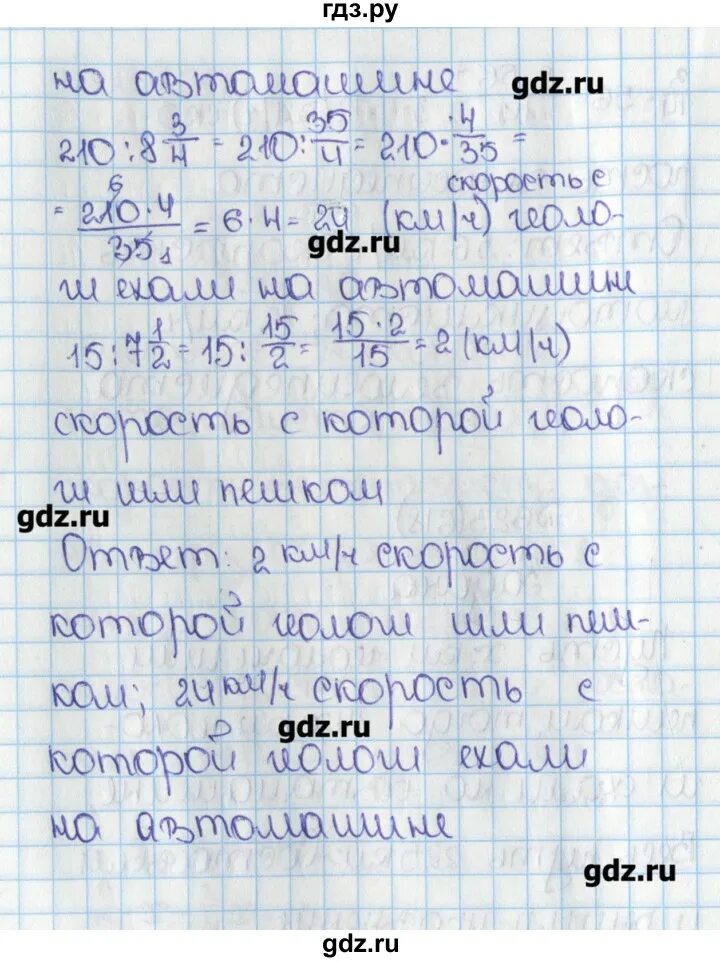 гдз.ру
на автомашине
gdz.ru
210 : 8 3/4 = 210 : 35/4 = 210 · 4/35 =
скорость с
= 210·4/35 = 6·4 = 24 (км/ч) геоло-
6
1
gdz.ru
ги ехали на автомашине
15 : 7 1/2 = 15 : 15/2 = 15·2/15 = 2 (км/ч)
скорость с которой геоло-
ги шли пешком
gdz.ru
Ответ: 2 км/ч скорость с
которой геологи шли пеш-
ком; 24 км/ч скорость с
gdz.ru
которой геологи ехали
на автомашине
gdz.ru
gdz.ru